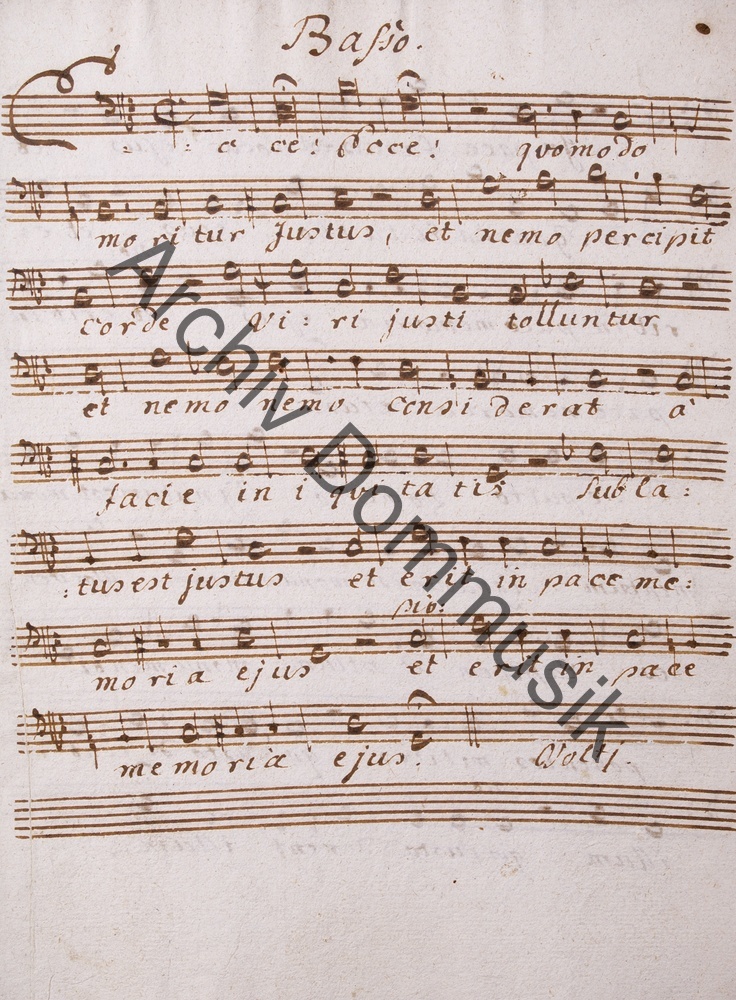 Basso.
: c ce! Ecce! quomodo
moritur Justus, et nemo percipit
corde Vi: ri justi tolluntur
et nemo nemo considerat à
facie in i qui ta tis Subla:
:tus est justus et erit in pace me:
pip:
moria ejus et erit in pace
memoria ejus. Volti.
Archiv Dommusik